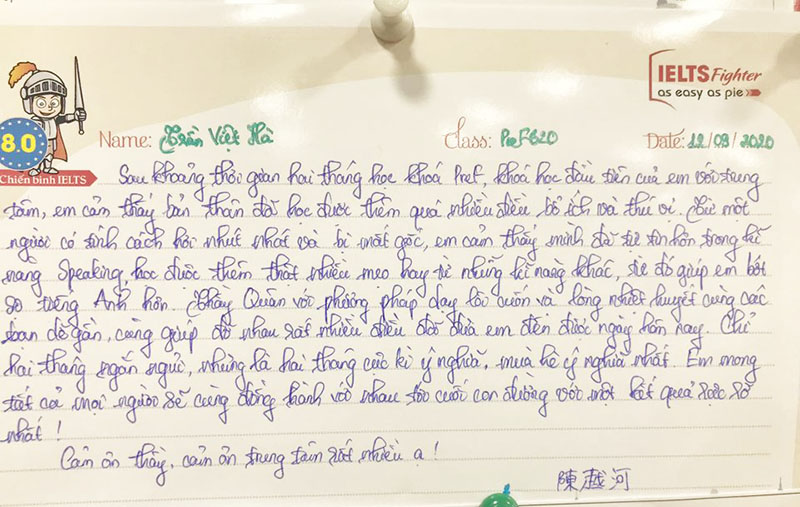 IELTS Fighter
as easy as pie
8.0
Chiến binh IELTS
Name: Trần Việt Hà Class: Pref620 Date: 12/09/2020
Sau khoảng thời gian hai tháng học khoá Pref, khoá học đầu tiên của em với trung
tâm, em cảm thấy bản thân đã học được thêm quá nhiều điều bổ ích và thú vị. Từ một
người có tính cách hơi nhút nhát và bị mất gốc, em cảm thấy mình đã tự tin hơn trong kĩ
năng Speaking, học được thêm thật nhiều mẹo hay từ những kĩ năng khác, từ đó giúp em bớt
sợ tiếng Anh hơn. Thầy Quân với phương pháp dạy lôi cuốn và lòng nhiệt huyết cùng các
bạn dễ gần, cùng giúp đỡ nhau rất nhiều điều đã đưa em đến được ngày hôm nay. Chỉ
hai tháng ngắn ngủi, nhưng là hai tháng cực kì ý nghĩa, mùa hè ý nghĩa nhất. Em mong
tất cả mọi người sẽ cùng đồng hành với nhau tới cuối con đường với một kết quả rực rỡ
nhất!
Cảm ơn thầy, cảm ơn trung tâm rất nhiều ạ!
陳越河